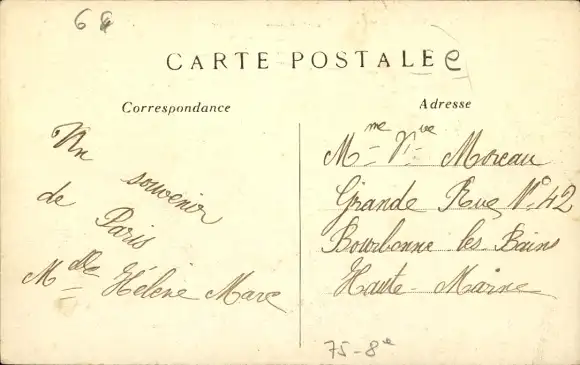 CARTE POSTALE
Correspondance
Adresse
Un souvenir
de Paris
Mdlle Hélène Marc
Mme Vve Moreau
Grande Rue, N° 42
Bourbonne les Bains
Haute-Marne
75-8e